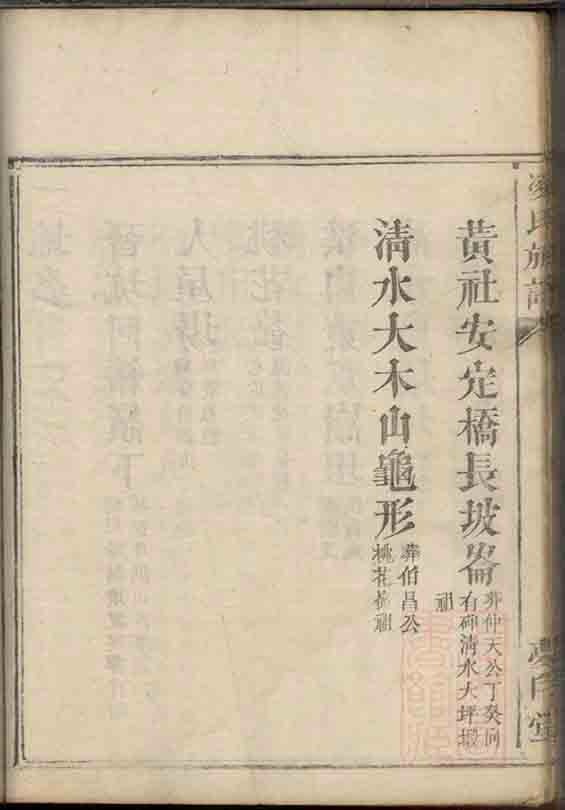 凌氏族譜
堂
黄社安定橋長坡崙
葬仲天公丁癸向
有碑清水大坪塅
祖
清水大木山龜形
葬伯昌公
桃花祖